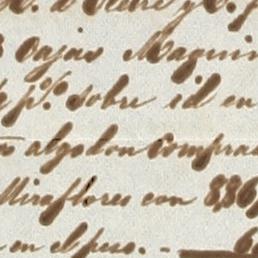 Cajas Maquin
p.r sobre id en
algodon Compra
Miraflores con 8,86
en el peso. -